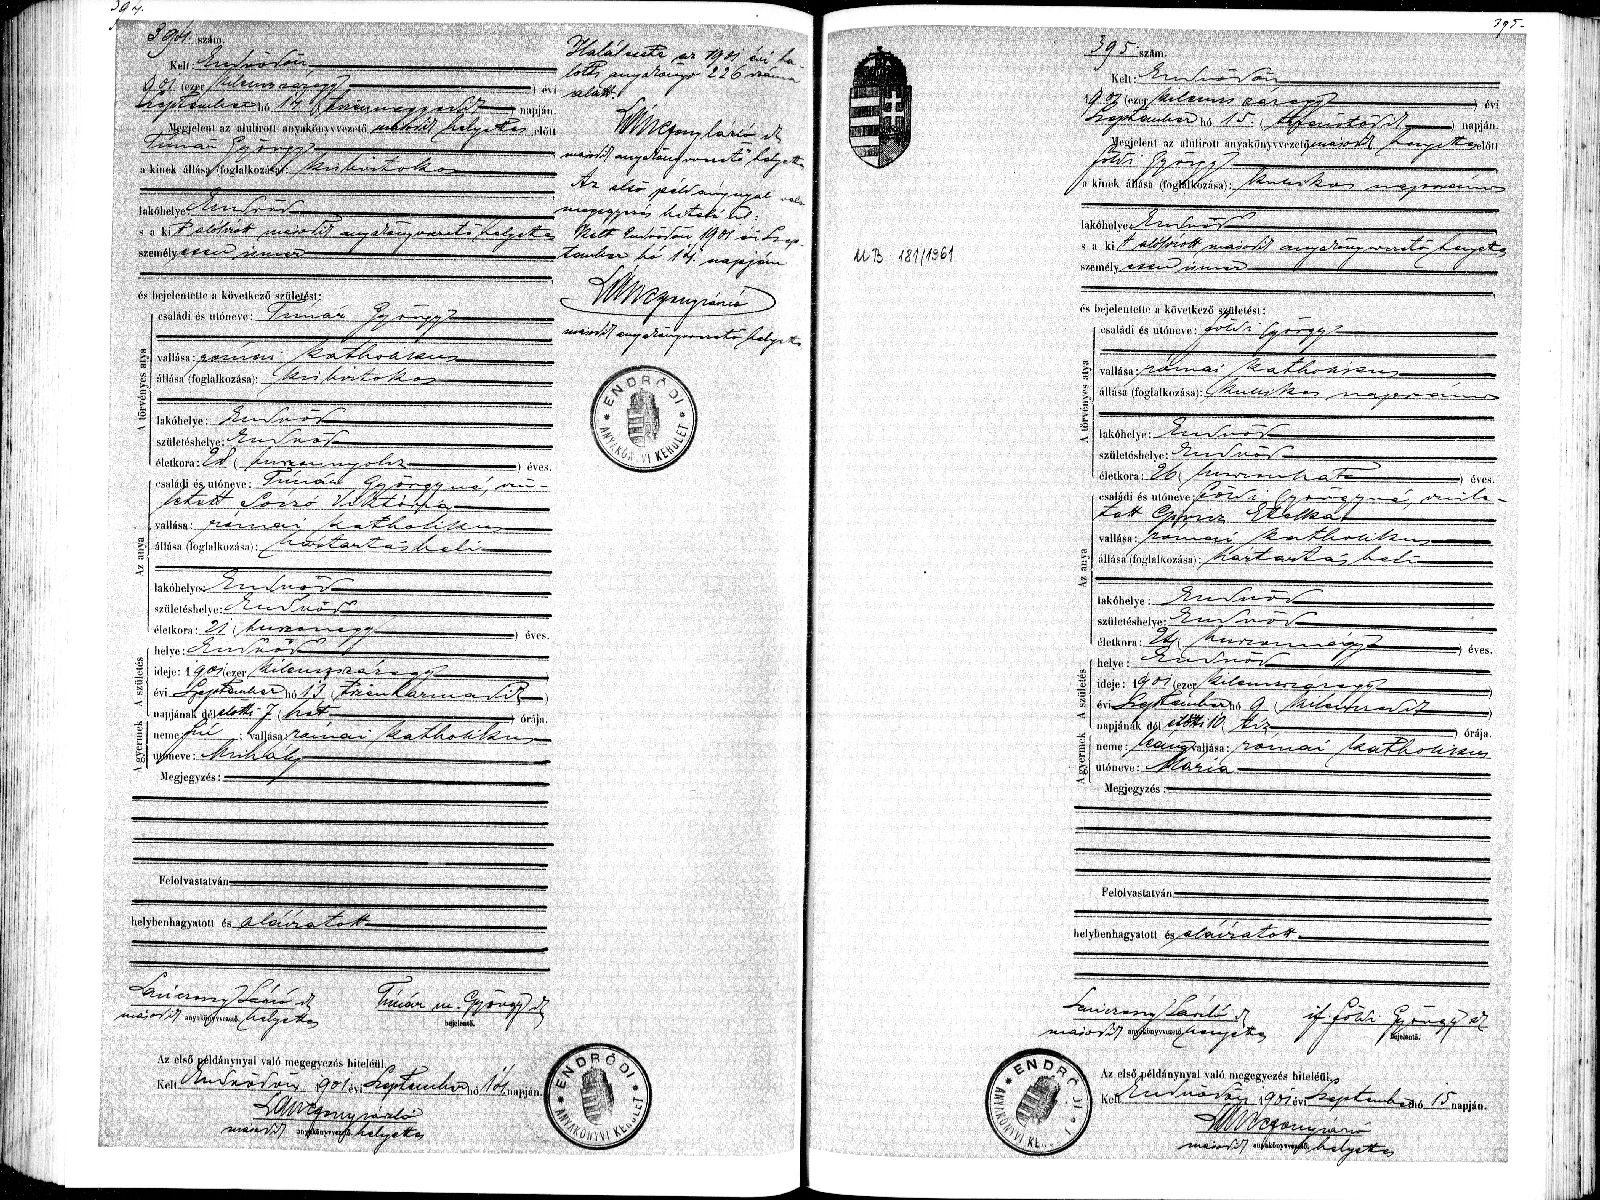 394.
394 szám.
Kelt: Endrődön
1901 (ezer kilenczszázegy) évi
Szeptember hó 14. (tizennegyedik) napján.
Megjelent az alulirott anyakönyvvezető második helyettes előtt
Timár György
a kinek állása (foglalkozása): kisbirtokos
lakóhelye: Endrőd
s a kit alólirott második anyakönyvvezető helyettes
személyesen ismer
és bejelentette a következő születést:
A törvényes atya
családi és utóneve: Timár György
vallása: római katholikus
állása (foglalkozása): kisbirtokos
lakóhelye: Endrőd
születéshelye: Endrőd
életkora: 28 (huszonnyolcz) éves.
Az anya
családi és utóneve: Timár Györgyné, szü-
letett Soczó Viktória
vallása: római katholikus
állása (foglalkozása): háztartásbeli
lakóhelye: Endrőd
születéshelye: Endrőd
életkora: 21 (huszonegy) éves.
A születés
helye: Endrőd
ideje: 1901 (ezer kilenczszázegy)
évi Szeptember hó 13 (tizenharmadik)
napjának dél előtti 7 (hét) órája.
A gyermek
neme: fiú vallása: római katholikus
utóneve: Mihály
Megjegyzés:
Felolvastatván
helybenhagyatott és aláiratott
Lánczony László sk
második anyakönyvvezető helyettes
Timár m. György sk
bejelentő.
Az első példánynyal való megegyezés hiteléül.
Kelt Endrődön 1901 évi Szeptember hó 14 napján.
Lánczony László
második anyakönyvvezető helyettes
ENDRŐDI
ANYAKÖNYVI KERÜLET
Halálesete az 1901 évi ha-
lotti anyakönyv 226 száma
alatt.
Lánczony László sk
második anyakönyvvezető helyettes
Az első példánynyal való
megegyezés hiteléül:
Kelt Endrődön 1901 évi Szep-
tember hó 14. napján
Lánczony László
második anyakönyvvezető helyettes
ENDRŐDI
ANYAKÖNYVI KERÜLET
MB 181/1961
395.
395 szám.
Kelt: Endrődön
1901 (ezer kilenczszázegy) évi
Szeptember hó 15. (tizenötödik) napján.
Megjelent az alulirott anyakönyvvezető második helyettes előtt
Földi György
a kinek állása (foglalkozása): kubikos napszámos
lakóhelye: Endrőd
s a kit alólirott második anyakönyvvezető helyettes
személyesen ismer
és bejelentette a következő születést:
A törvényes atya
családi és utóneve: Földi György
vallása: római katholikus
állása (foglalkozása): kubikos napszámos
lakóhelye: Endrőd
születéshelye: Endrőd
életkora: 26 (huszonhat) éves.
Az anya
családi és utóneve: Földi Györgyné, szüle-
tett Etelka
vallása: római katholikus
állása (foglalkozása): háztartásbeli
lakóhelye: Endrőd
születéshelye: Endrőd
életkora: 24 (huszonnégy) éves.
A születés
helye: Endrőd
ideje: 1901 (ezer kilenczszázegy)
évi Szeptember hó 9 (kilenczedik)
napjának dél előtti 10 tiz órája.
A gyermek
neme: leány vallása: római katholikus
utóneve: Mária
Megjegyzés:
Felolvastatván
helybenhagyatott és aláiratott
Lánczony László sk
második anyakönyvvezető helyettes
if. Földi György sk
bejelentő.
Az első példánynyal való megegyezés hiteléül.
Kelt Endrődön 1901 évi Szeptember hó 15 napján.
Lánczony László
második anyakönyvvezető helyettes
ENDRŐDI
ANYAKÖNYVI KE